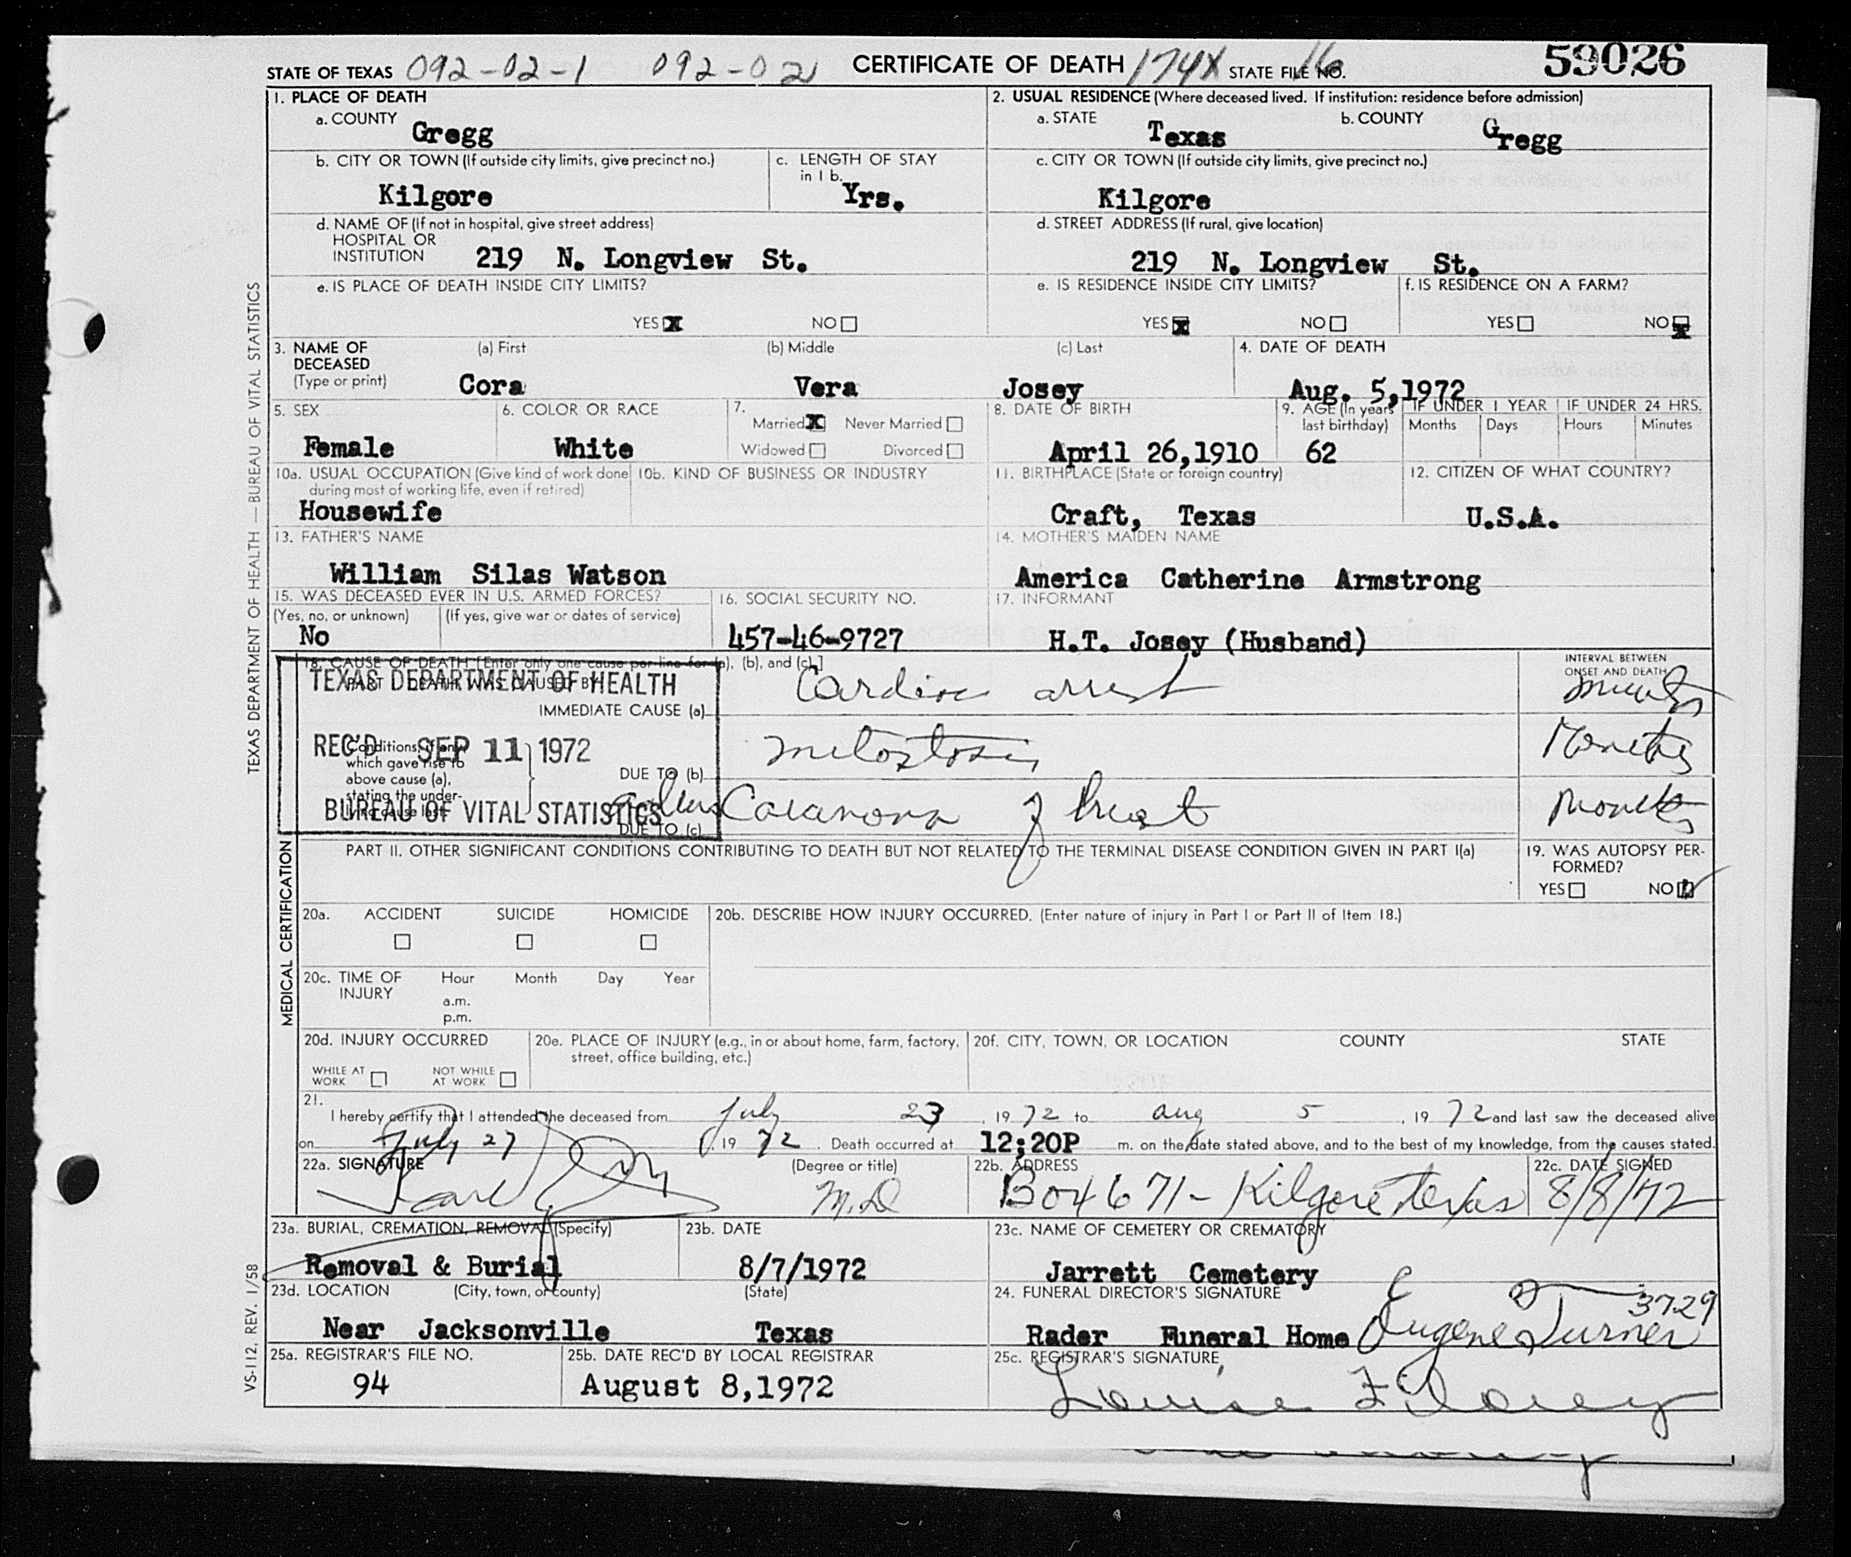 STATE OF TEXAS 092-02-1 092-02 CERTIFICATE OF DEATH 174X STATE FILE NO. 59026
1. PLACE OF DEATH
a. COUNTY Gregg
2. USUAL RESIDENCE (Where deceased lived. If institution: residence before admission)
a. STATE Texas b. COUNTY Gregg
b. CITY OR TOWN (If outside city limits, give precinct no.) Kilgore
c. LENGTH OF STAY in 1 b. Yrs.
c. CITY OR TOWN (If outside city limits, give precinct no.) Kilgore
d. NAME OF (If not in hospital, give street address)
HOSPITAL OR
INSTITUTION 219 N. Longview St.
d. STREET ADDRESS (If rural, give location)
219 N. Longview St.
e. IS PLACE OF DEATH INSIDE CITY LIMITS?
YES X NO
e. IS RESIDENCE INSIDE CITY LIMITS?
YES X NO
f. IS RESIDENCE ON A FARM?
YES NO X
3. NAME OF DECEASED (Type or print)
(a) First (b) Middle (c) Last
Cora Vera Josey
4. DATE OF DEATH
Aug. 5,1972
5. SEX
Female
6. COLOR OR RACE
White
7. Married X Never Married
Widowed Divorced
8. DATE OF BIRTH
April 26,1910
9. AGE (In years last birthday)
62
IF UNDER 1 YEAR IF UNDER 24 HRS.
Months Days Hours Minutes
10a. USUAL OCCUPATION (Give kind of work done during most of working life, even if retired)
Housewife
10b. KIND OF BUSINESS OR INDUSTRY
11. BIRTHPLACE (State or foreign country)
Craft, Texas
12. CITIZEN OF WHAT COUNTRY?
U.S.A.
13. FATHER'S NAME
William Silas Watson
14. MOTHER'S MAIDEN NAME
America Catherine Armstrong
15. WAS DECEASED EVER IN U.S. ARMED FORCES?
(Yes, no, or unknown) (If yes, give war or dates of service)
No
16. SOCIAL SECURITY NO.
457-46-9727
17. INFORMANT
H.T. Josey (Husband)
18. CAUSE OF DEATH [Enter only one cause per line for (a), (b), and (c).]
PART I. DEATH WAS CAUSED BY:
IMMEDIATE CAUSE (a) Cardiac arrest
INTERVAL BETWEEN ONSET AND DEATH
TEXAS DEPARTMENT OF HEALTH
REC'D SEP 11 1972
BUREAU OF VITAL STATISTICS
Conditions, if any, which gave rise to above cause (a), stating the underlying cause last.
DUE TO (b) Metostosis Months
DUE TO (c) Carcanoma of breast Months
PART II. OTHER SIGNIFICANT CONDITIONS CONTRIBUTING TO DEATH BUT NOT RELATED TO THE TERMINAL DISEASE CONDITION GIVEN IN PART I(a)
19. WAS AUTOPSY PERFORMED?
YES NO
20a. ACCIDENT SUICIDE HOMICIDE
20b. DESCRIBE HOW INJURY OCCURRED. (Enter nature of injury in Part I or Part II of Item 18.)
20c. TIME OF INJURY Hour Month Day Year
a.m.
p.m.
20d. INJURY OCCURRED
WHILE AT WORK NOT WHILE AT WORK
20e. PLACE OF INJURY (e.g., in or about home, farm, factory, street, office building, etc.)
20f. CITY, TOWN, OR LOCATION COUNTY STATE
21. I hereby certify that I attended the deceased from July 23, 1972 to aug 5, 1972 and last saw the deceased alive
on July 27, 1972. Death occurred at 12;20P m. on the date stated above, and to the best of my knowledge, from the causes stated.
22a. SIGNATURE (Degree or title)
M.D
22b. ADDRESS
Box 671- Kilgore Texas
22c. DATE SIGNED
8/8/72
23a. BURIAL, CREMATION, REMOVAL (Specify)
Removal & Burial
23b. DATE
8/7/1972
23c. NAME OF CEMETERY OR CREMATORY
Jarrett Cemetery
23d. LOCATION (City, town, or county) (State)
Near Jacksonville Texas
24. FUNERAL DIRECTOR'S SIGNATURE
Rader Funeral Home Eugene Turner 3729
25a. REGISTRAR'S FILE NO.
94
25b. DATE REC'D BY LOCAL REGISTRAR
August 8,1972
25c. REGISTRAR'S SIGNATURE
Louise
TEXAS DEPARTMENT OF HEALTH — BUREAU OF VITAL STATISTICS
MEDICAL CERTIFICATION
VS-112, REV. 1/58